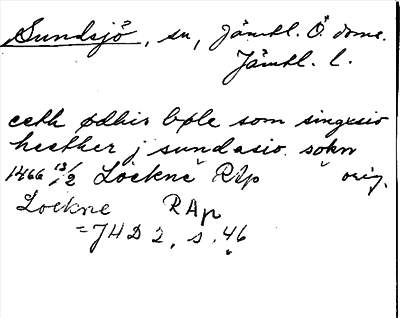 Sundsjö, sn, Jämtl. Ö doms.
Jämtl. l.
eeth ødhis bøle som singxsio
heether j sundasio sokn
1466 13/2 Lockne RAp orig.
Lockne RAp
=JHD 2, s. 46